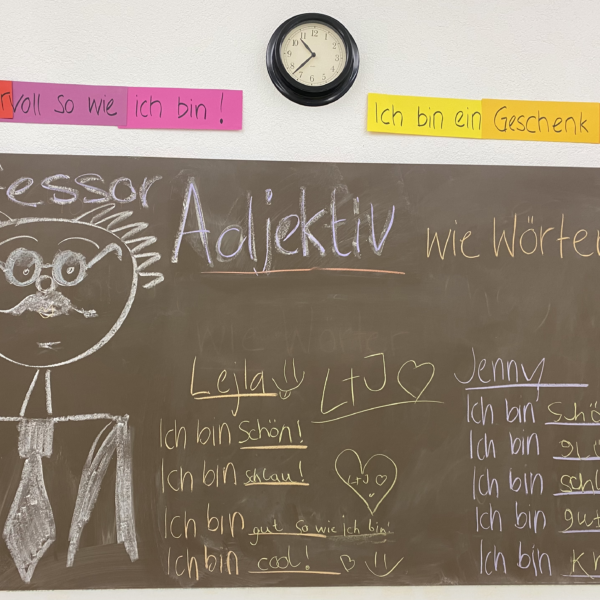 voll so wie ich bin!
Ich bin ein Geschenk
essor
Adjektiv wie Wörter
Lejla
L+J
Jenny
Ich bin Schön!
Ich bin schlau!
L+J
Ich bin gut so wie ich bin!
Ich bin cool!
Ich bin schö
Ich bin
Ich bin schl
Ich bin gut
Ich bin